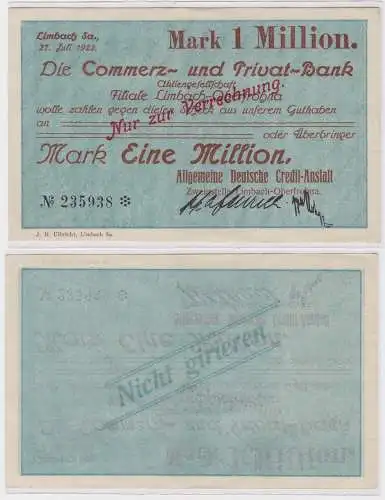 Limbach Sa.,
27. Juli 1923.
Mark 1 Million.
Die Commerz- und Privat-Bank
Aktiengesellschaft
Filiale Limbach-Oberfrohna
wolle zahlen gegen diesen Scheck aus unserem Guthaben
Nur zur Verrechnung.
an
oder Überbringer
Mark Eine Million.
Allgemeine Deutsche Credit-Anstalt
Zweigstelle Limbach-Oberfrohna.
№ 235938 ❉
J. R. Ulbricht, Limbach Sa.
Nicht girieren